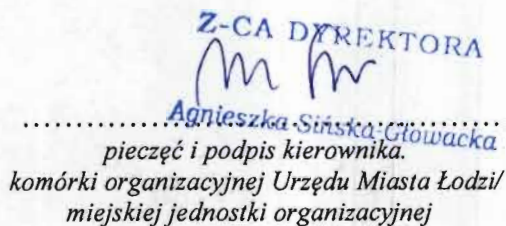 Z-CA DYREKTORA
Agnieszka Sińska-Głowacka
pieczęć i podpis kierownika.
komórki organizacyjnej Urzędu Miasta Łodzi/
miejskiej jednostki organizacyjnej